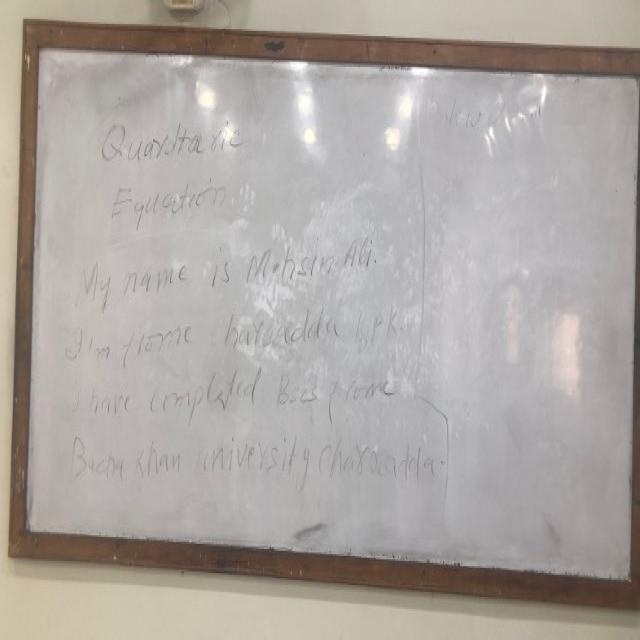 Quardtaric
Equation
My name is Mohsin Ali.
I'm frome charsadda kpk.
I have completed B.cs frome
Bacha khan university charsadda.